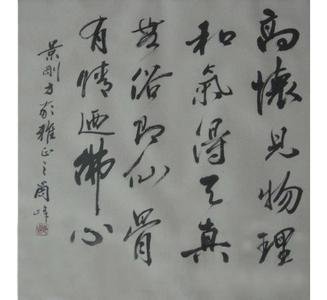 高懷見物理
和氣得天真
無俗即仙骨
有情迺佛心
景剛方家雅正之蘭峰